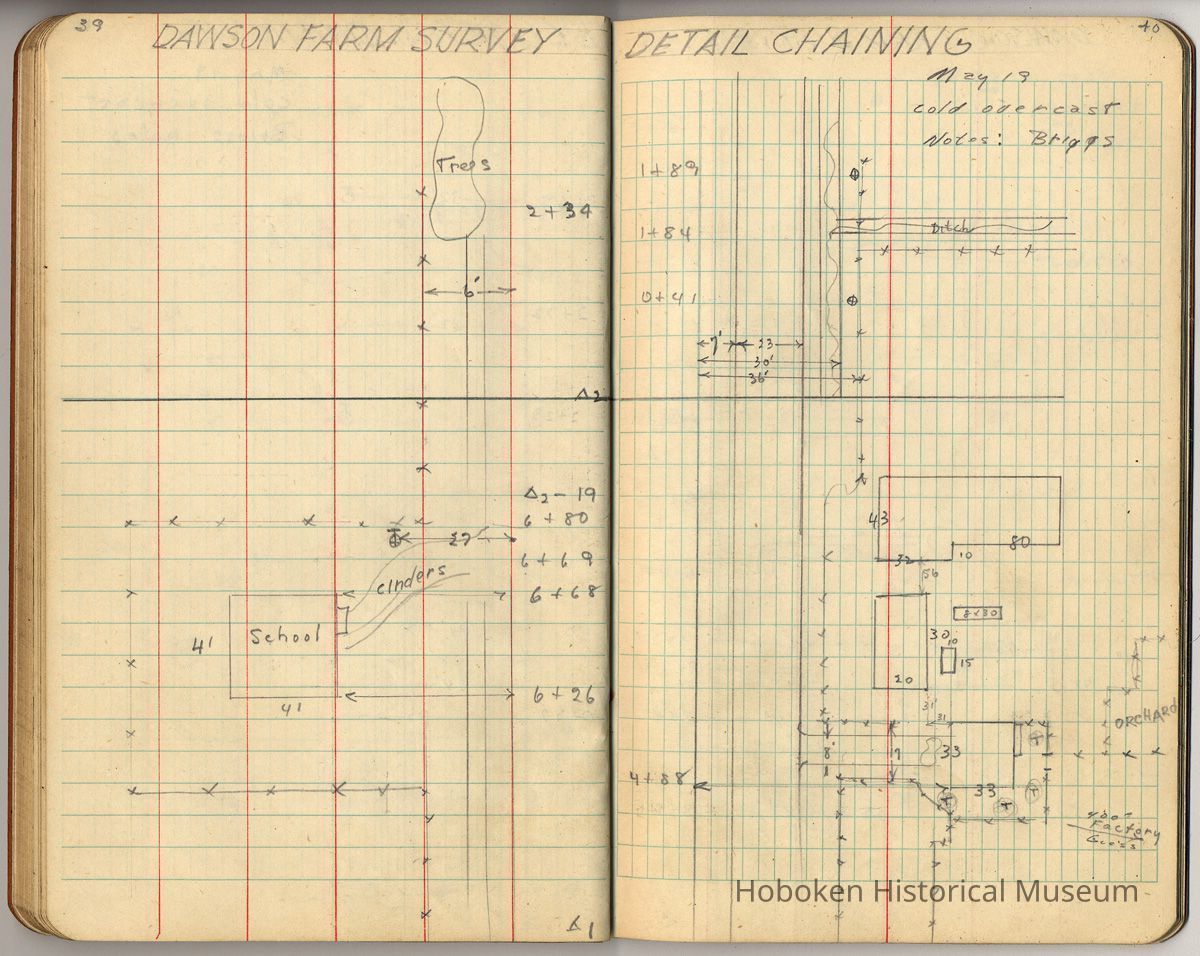 39
DAWSON FARM SURVEY
Trees
2+34
6'
Δ2
Δ2-19
6+80
27
6+69
cinders
6+68
School
41
6+26
41
Δ1
40
DETAIL CHAINING
May 19
cold overcast
Notes: Briggs
1+89
1+84
Ditch
0+41
7' 23
30'
36'
43
80
32 10
56
8x30
30
10
15
20
31
31
ORCHARD
8'
9
33
4+88
33
Factory
Hoboken Historical Museum